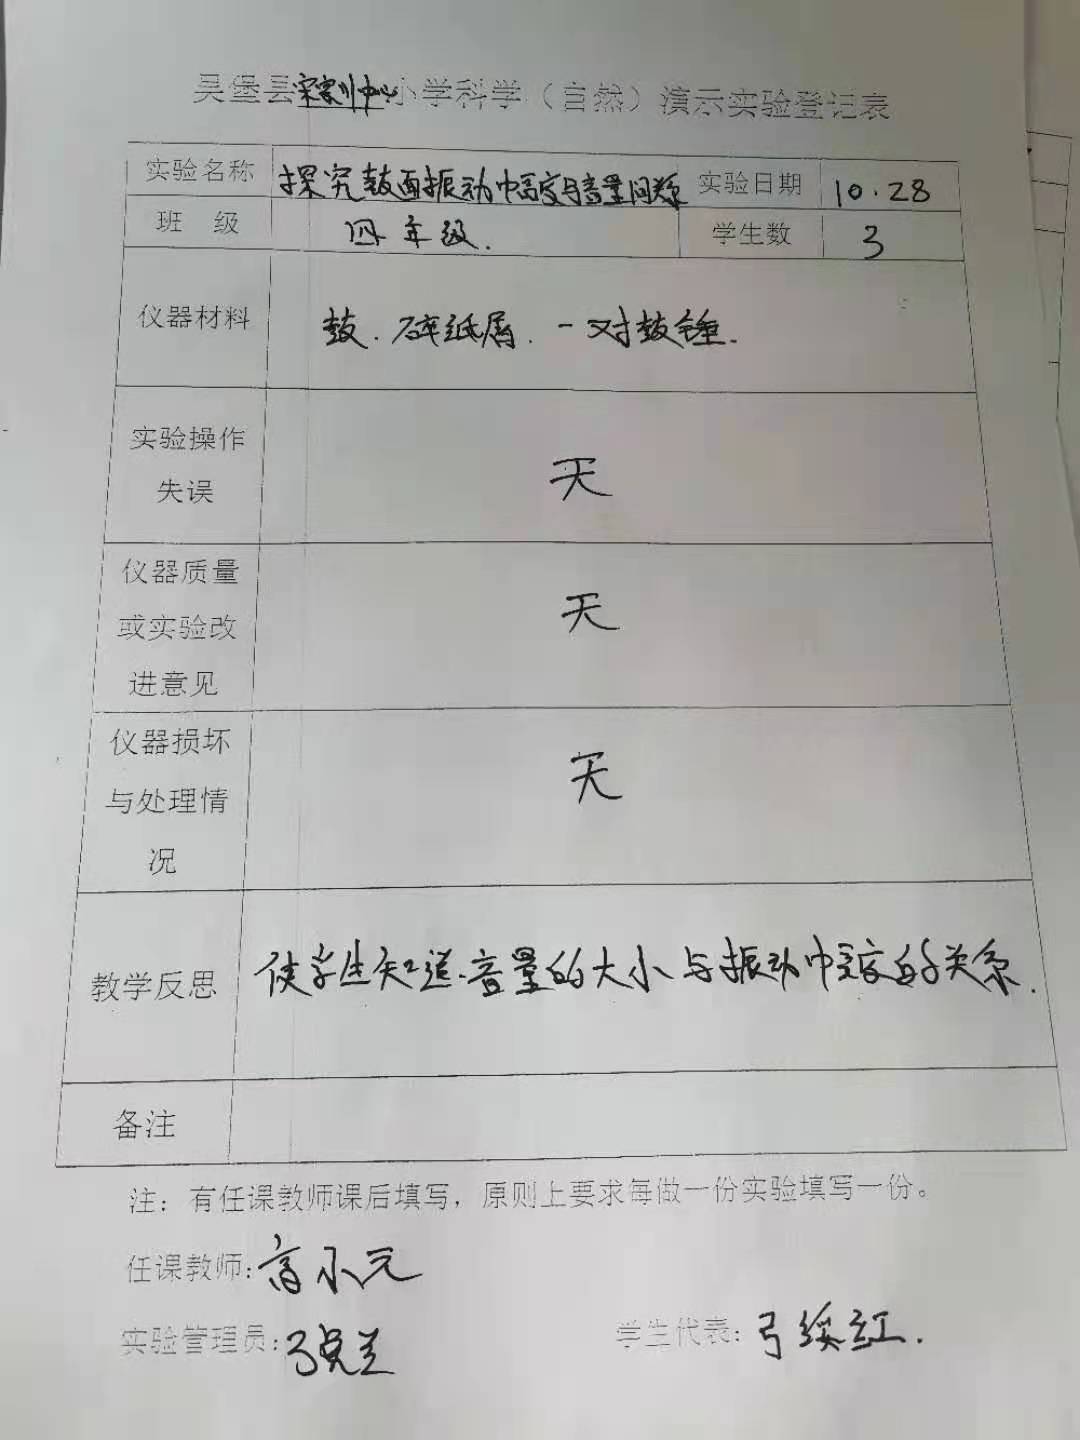 吴堡县宋家川中心小学科学（自然）演示实验登记表
实验名称 探究鼓面振动幅度与音量间关系 实验日期 10.28
班 级 四年级. 学生数 3
仪器材料 鼓.碎纸屑.一对鼓锤.
实验操作
失误 无
仪器质量
或实验改
进意见 无
仪器损坏
与处理情
况 无
教学反思 使学生知道.音量的大小与振动幅度的关系.
备注
注：有任课教师课后填写，原则上要求每做一份实验填写一份。
任课教师:高小元
实验管理员: 学生代表:弓绥红.